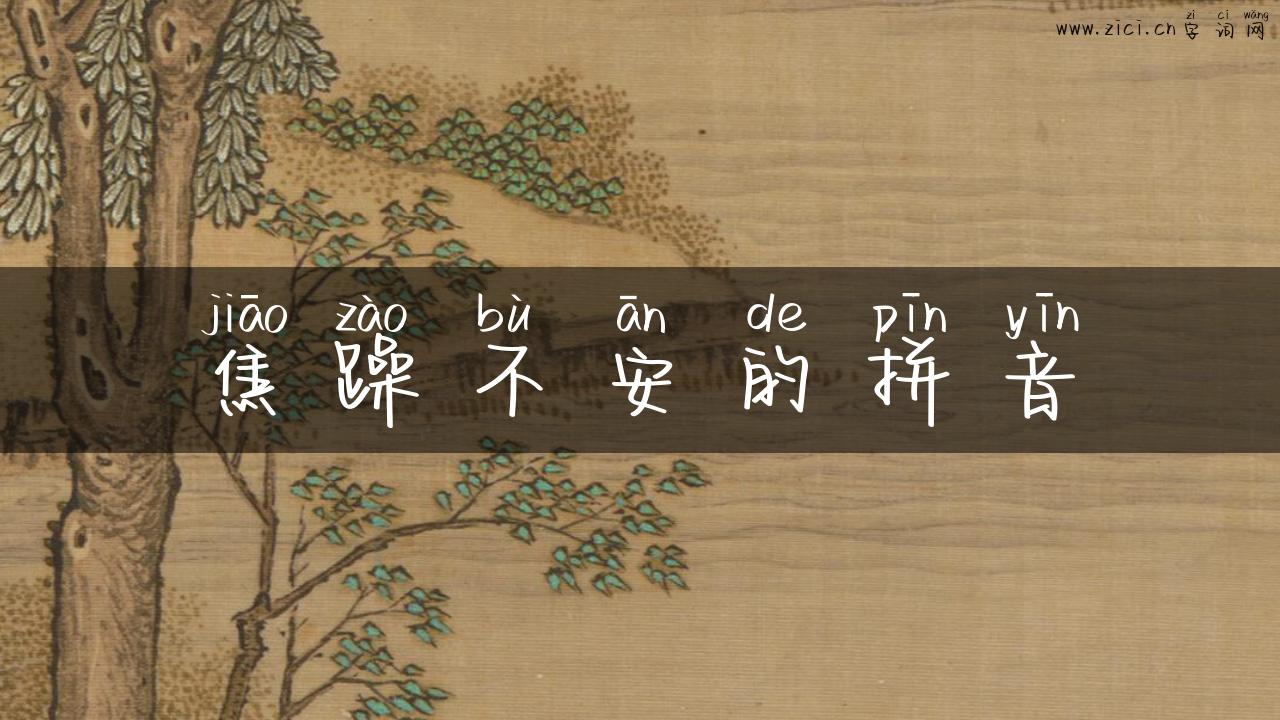 zì cí wǎng
www.zici.cn 字词网
jiāo zào bù ān de pīn yīn
焦躁不安的拼音